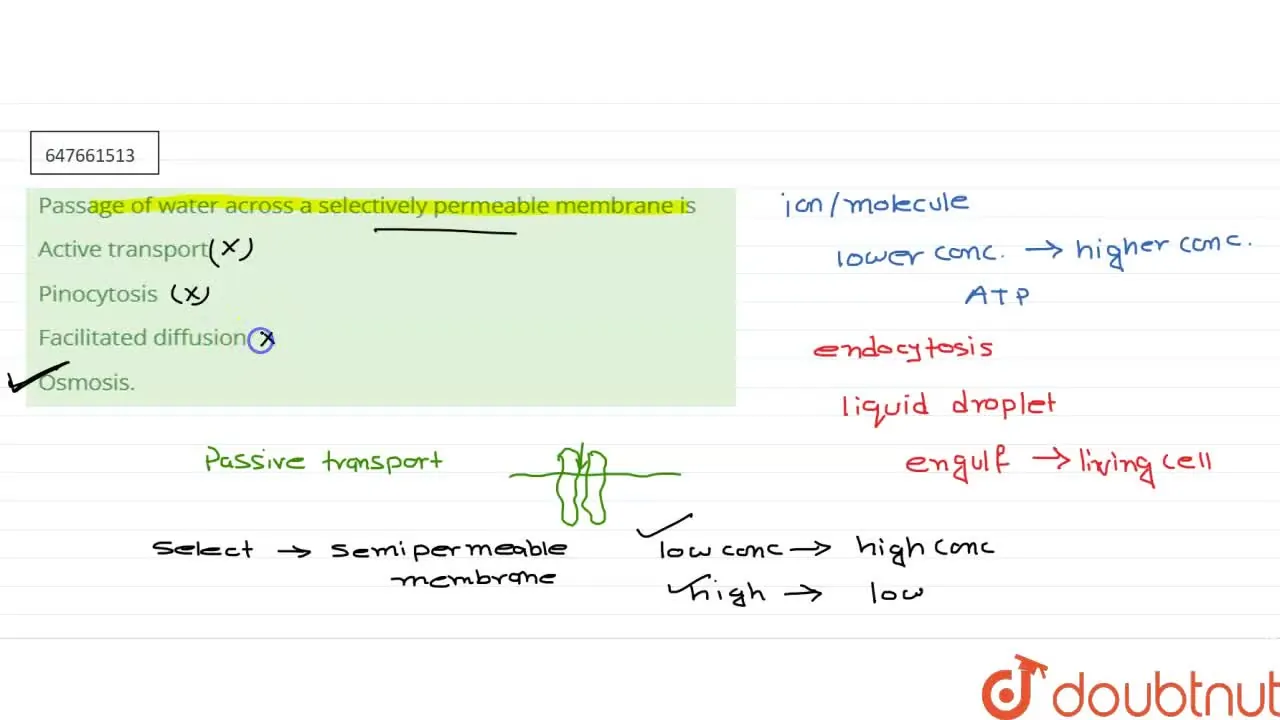 647661513
Passage of water across a selectively permeable membrane is
Active transport (x)
Pinocytosis (x)
Facilitated diffusion x
Osmosis.
ion/molecule
lower conc. → higher conc.
ATP
endocytosis
liquid droplet
engulf → living cell
Passive transport
select → semipermeable
membrane
low conc → high conc
high → low
doubtnut